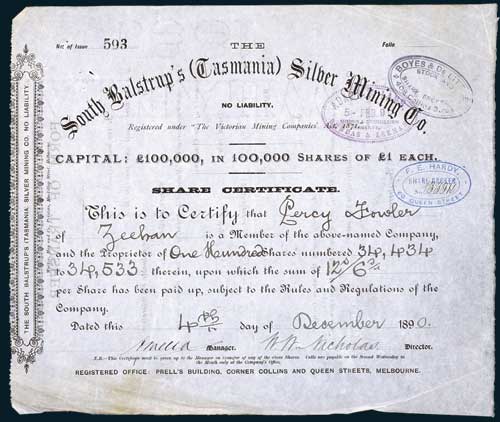 No. of Issue 593
THE
Folio
South Balstrup's (Tasmania) Silver Mining Co.
NO LIABILITY.
Registered under "The Victorian Mining Companies' Act, 1871
CAPITAL: £100,000, IN 100,000 SHARES OF £1 EACH.
SHARE CERTIFICATE.
This is to Certify that Percy Fowler
of Zeehan is a Member of the above-named Company,
and the Proprietor of One Hundred Shares numbered 34,434
to 34,533 therein, upon which the sum of 12/6
per Share has been paid up, subject to the Rules and Regulations of the
Company.
Dated this 4th day of December 1890.
Manager. W. W. Nicholas Director.
N.B.—This Certificate must be given up to the Manager on transfer of any of the above Shares. Calls are payable on the Second Wednesday in
the Month only at the Company's Office.
REGISTERED OFFICE: PRELL'S BUILDING, CORNER COLLINS AND QUEEN STREETS, MELBOURNE.
THE SOUTH BALSTRUP'S (TASMANIA) SILVER MINING CO. NO LIABILITY.
BOYES & Co.
STOCK
F. E. HARDY
SHARE BROKER
QUEEN STREET
FEB